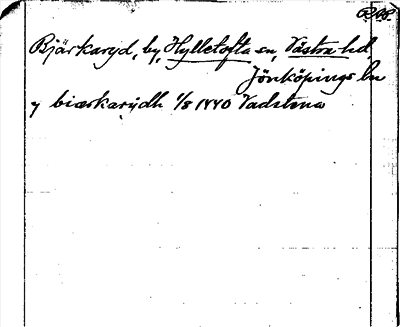 Bjärkaryd, by, Hylletofta sn, Västra hd,
Jönköpings ln
y biærkarydh 1/8 1440 Vadstena